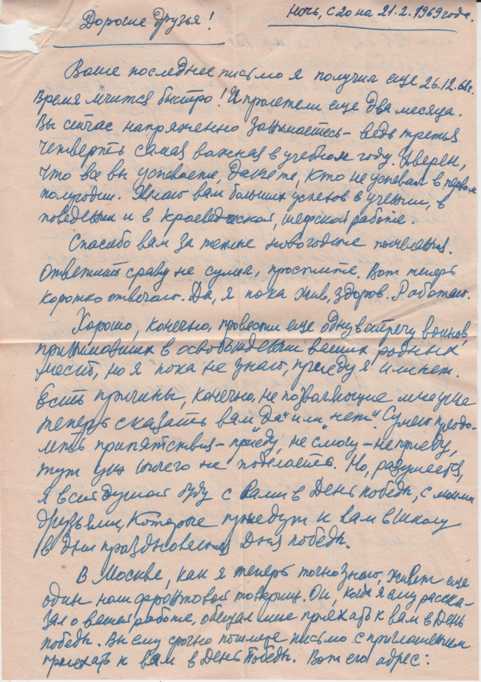 Дорогие друзья!
Ночь, с 20 на 21.2.1969 года.
Ваше последнее письмо я получил еще 26.12.68г.
Время мчится быстро! И пролетели еще два месяца.
Вы сейчас напряженно занимаетесь – ведь третья
четверть самая важная в учебном году. Уверен,
что все вы успеваете, даже те, кто не успевал в первом
полугодии. Желаю вам больших успехов в учении, в
поведении и в краеведческой, шефской работе.
Спасибо вам за теплые новогодние пожелания.
Ответить сразу не сумел, простите. Вот теперь
коротко отвечаю. Да, я пока жив, здоров. Работаю.
Хорошо, конечно, провести еще одну встречу воинов,
принимавших в освобождении ваших родных
мест, но я пока не знаю, приеду я или нет.
Есть причины, конечно, не позволяющие мне уже
теперь сказать вам "да" или "нет". Сумею преодо-
леть препятствия – приеду, не смогу – не приеду,
тут уж ничего не поделаешь. Но, разумеется,
я всей душой буду с вами в День победы, с моими
друзьями, которые приедут к вам в школу
в дни празднования Дня победы.
В Москве, как я теперь точно знаю, живет еще
один наш фронтовой товарищ. Он, когда я ему расска-
зал о вашей работе, обещал мне приехать к вам в День
победы. Вы ему срочно пошлите письмо с приглашением
приехать к вам в День Победы. Вот его адрес: